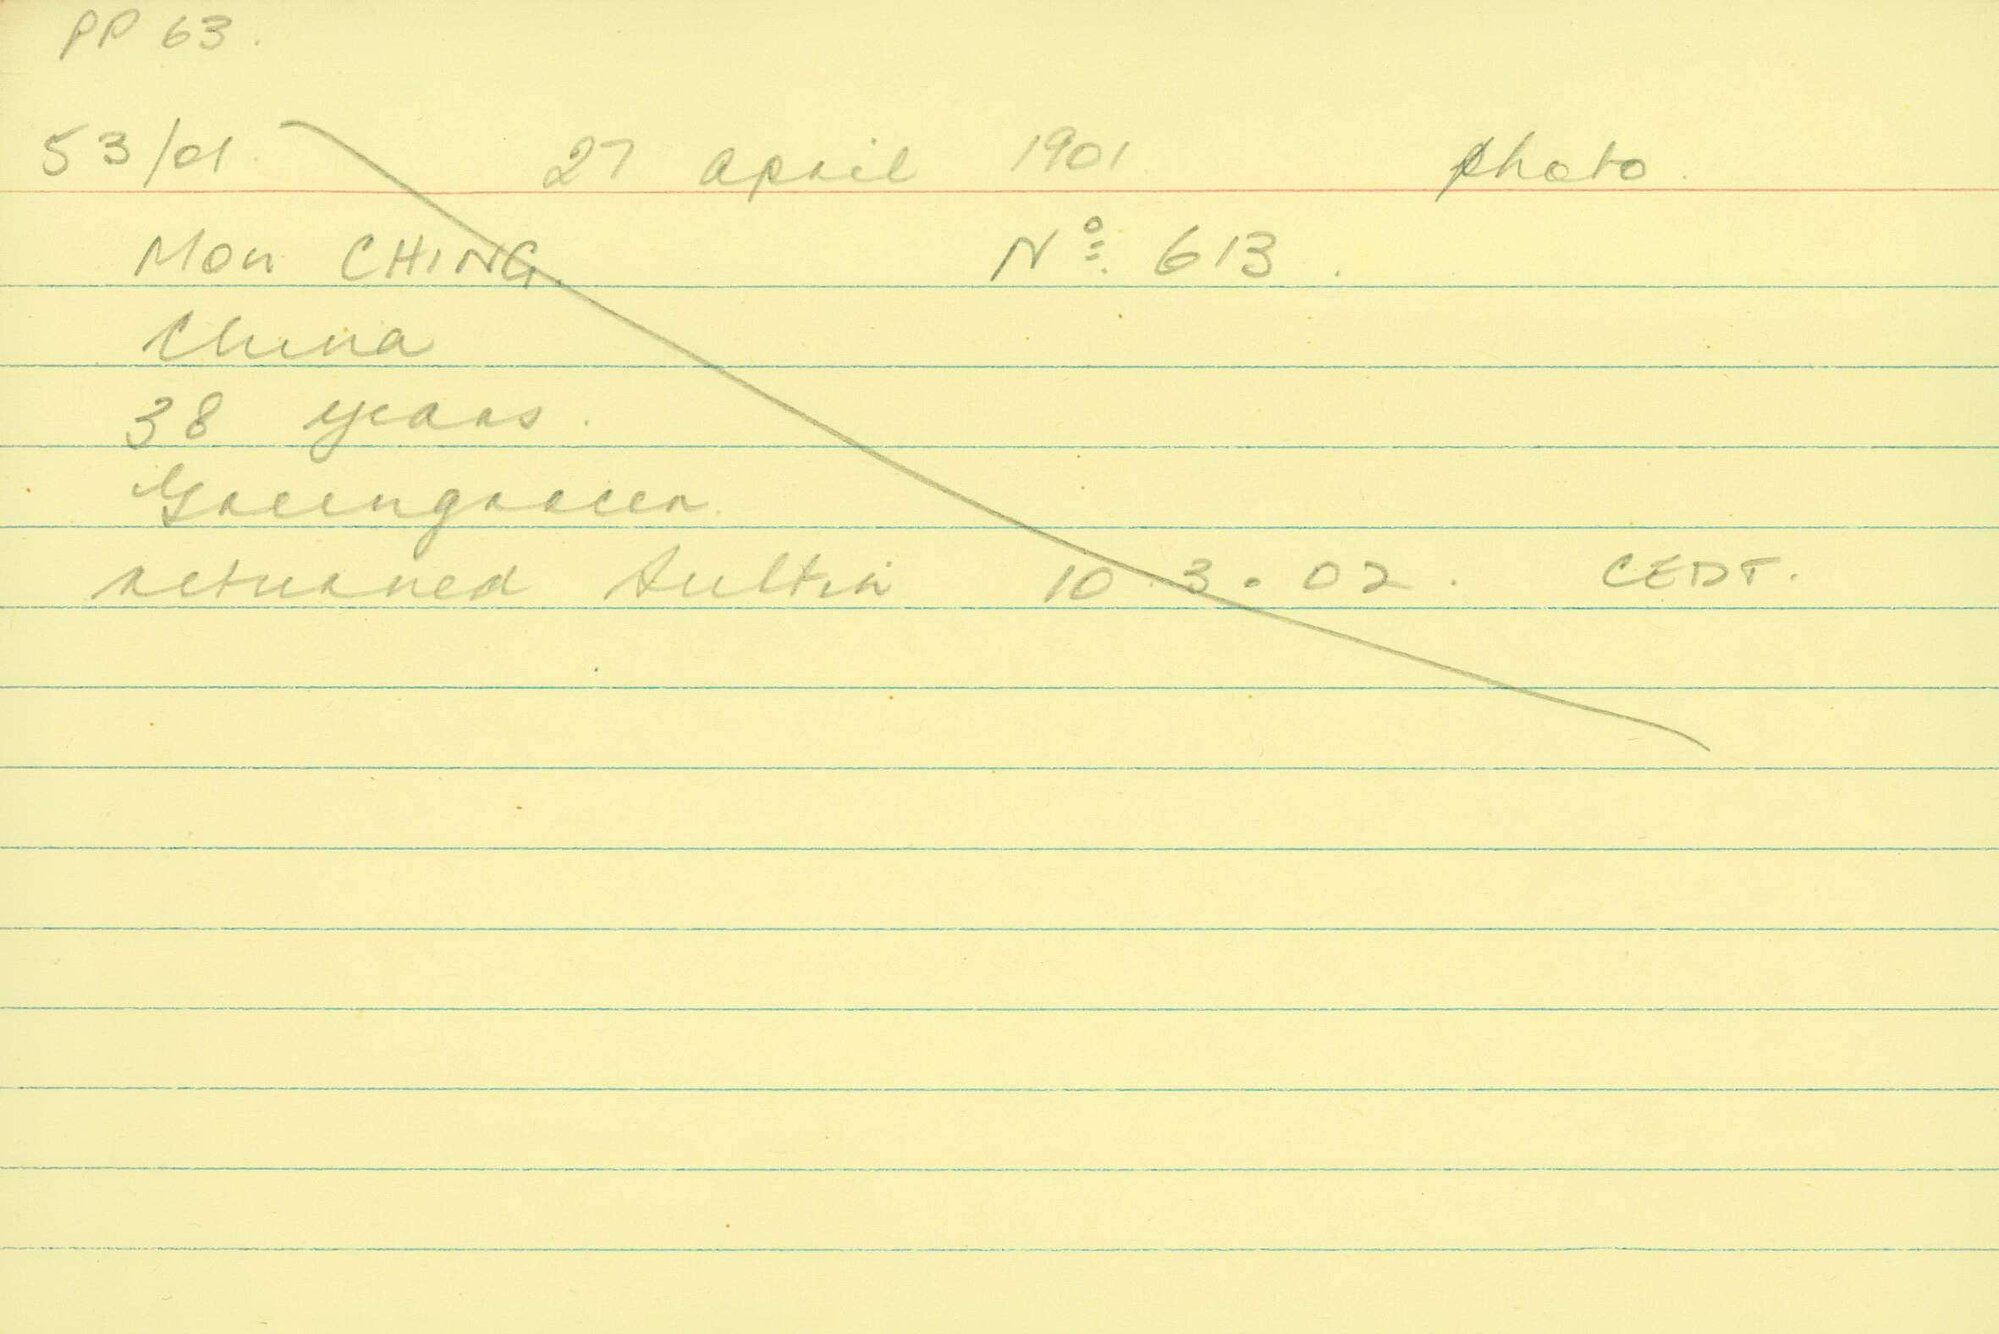 PP 63.
53/01. 27 April 1901 Photo.
Mon CHING. Nº. 613.
China
38 years.
Greengrocer.
returned 10.3.02. CEDT.